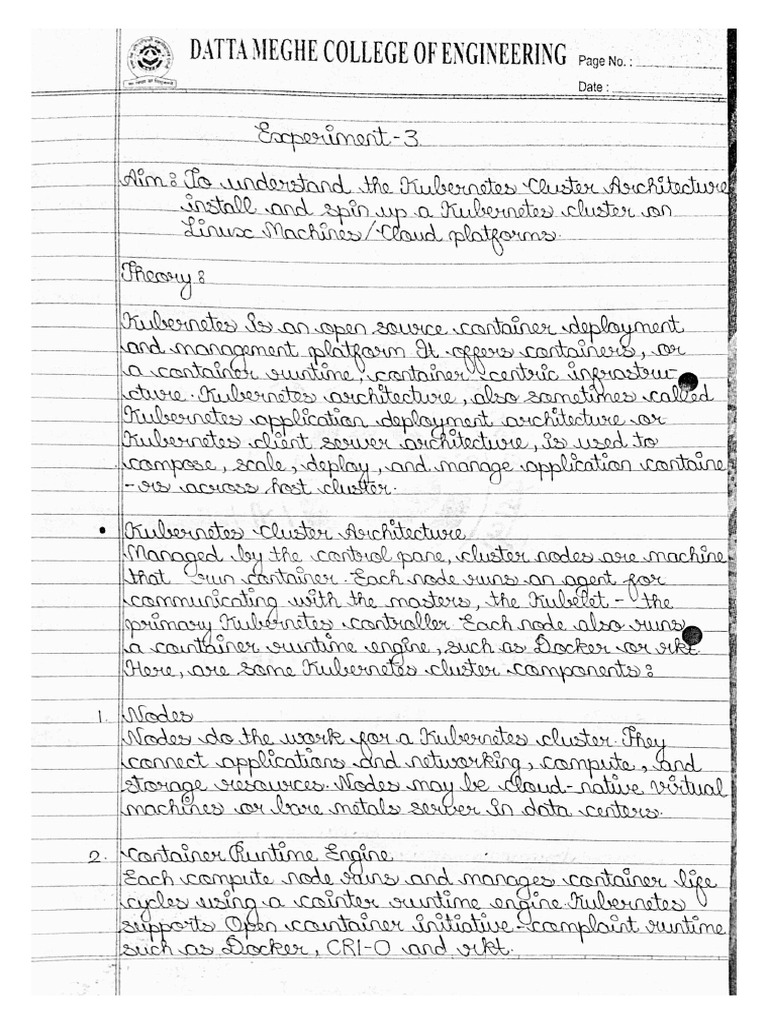 DATTA MEGHE COLLEGE OF ENGINEERING Page No. :
Date :
Experiment-3
Aim: To understand the Kubernetes Cluster Architecture
install and spin up a Kubernetes cluster on
Linux Machines/Cloud platforms.
Theory:
Kubernetes is an open source container deployment
and management platform It offers containers, or
a container runtime, container-centric infrastru-
cture. Kubernetes architecture, also sometimes called
Kubernetes application deployment architecture or
Kubernetes client server architecture, is used to
compose, scale, deploy, and manage application containe
-rs across host cluster.
• Kubernetes Cluster Architecture
Managed by the control pane, cluster nodes are machine
that run container. Each node runs an agent for
communicating with the masters, the Kubelet - the
primary Kubernetes controller. Each node also runs
a countainer runtime engine, such as Docker or rkt.
Here, are some Kubernetes cluster components:
1. Nodes
Nodes do the work for a Kubernetes cluster. They
connect applications and networking, compute, and
storage resources. Nodes may be cloud-native virtual
machines or bare metals server in data centers.
2. Container Runtime Engine
Each compute node runs and manages container life
cycles using a cointer runtime engine. Kubernetes
supports Open countainer initiative-complaint runtime
such as Docker, CRI-O and rkt.